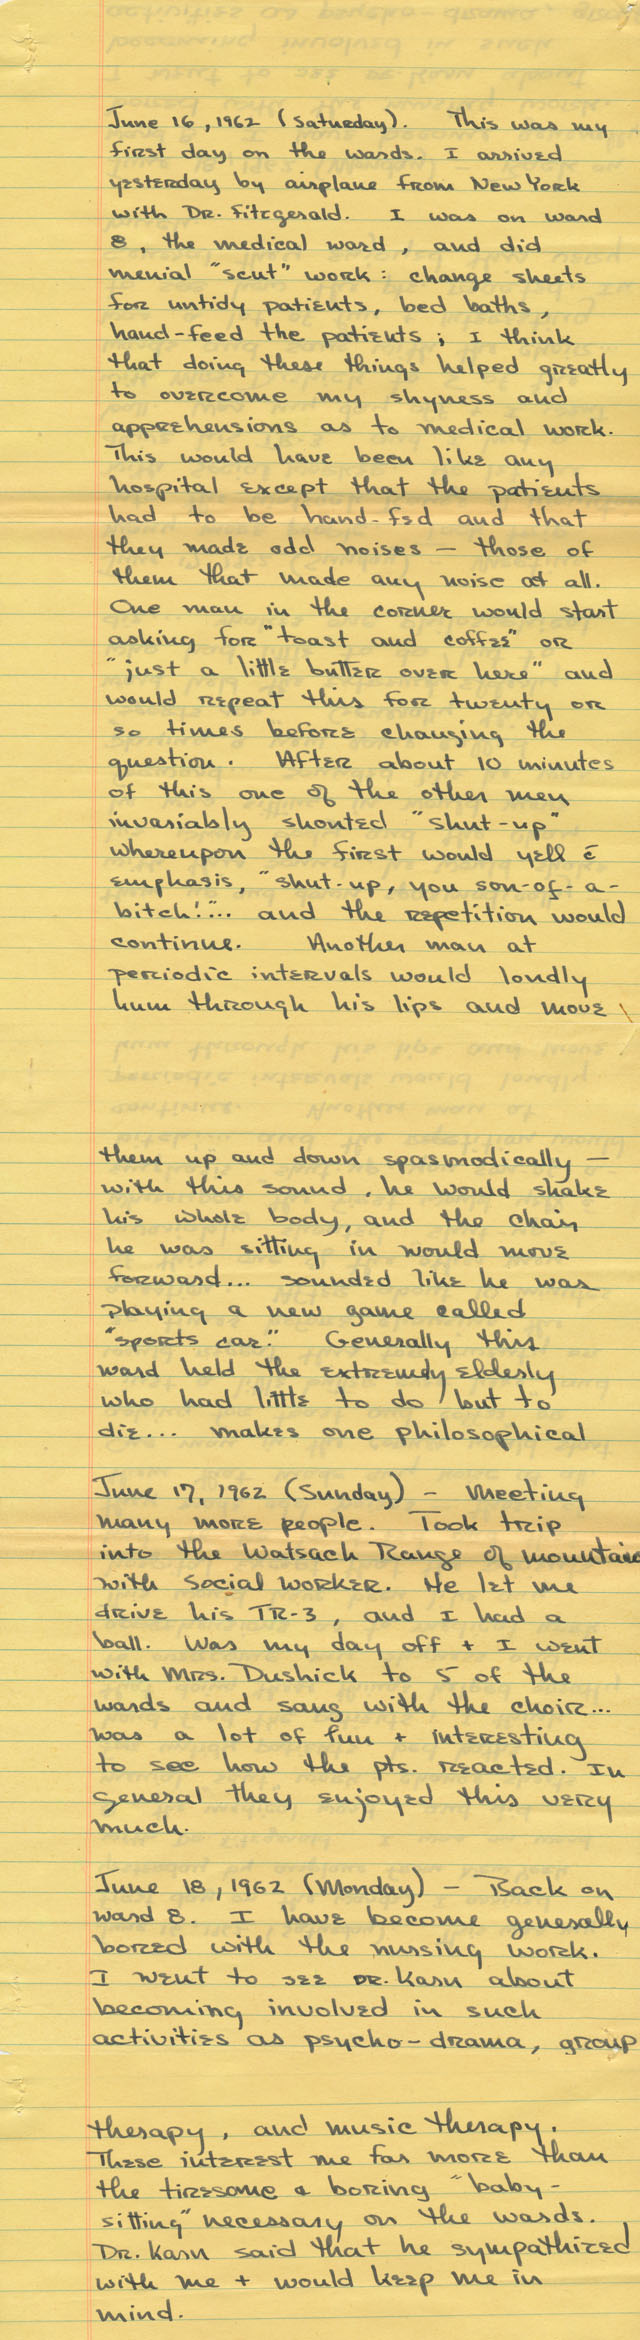 June 16, 1962 (Saturday). This was my
first day on the wards. I arrived
yesterday by airplane from New York
with Dr. Fitzgerald. I was on ward
8, the medical ward, and did
menial "scut" work: change sheets
for untidy patients, bed baths,
hand-feed the patients; I think
that doing these things helped greatly
to overcome my shyness and
apprehensions as to medical work.
This would have been like any
hospital except that the patients
had to be hand-fed and that
they made odd noises — those of
them that made any noise at all.
One man in the corner would start
asking for "toast and coffee" or
"just a little butter over here" and
would repeat this for twenty or
so times before changing the
question. After about 10 minutes
of this one of the other men
invariably shouted "shut-up"
whereupon the first would yell c̄
emphasis, "shut-up, you son-of-a-
bitch!"... and the repetition would
continue. Another man at
periodic intervals would loudly
hum through his lips and move
them up and down spasmodically —
with this sound, he would shake
his whole body, and the chair
he was sitting in would move
forward... sounded like he was
playing a new game called
"sports car." Generally this
ward held the extremely elderly
who had little to do but to
die... makes one philosophical
June 17, 1962 (Sunday) - Meeting
many more people. Took trip
into the Watsach Range of mountains
with social worker. He let me
drive his TR-3, and I had a
ball. Was my day off + I went
with Mrs. Dushick to 5 of the
wards and sang with the choir...
was a lot of fun + interesting
to see how the pts. reacted. In
general they enjoyed this very
much.
June 18, 1962 (Monday) - Back on
ward 8. I have become generally
bored with the nursing work.
I went to see Dr. Karn about
becoming involved in such
activities as psycho-drama, group
therapy, and music therapy.
These interest me far more than
the tiresome & boring "baby-
sitting" necessary on the wards.
Dr. Karn said that he sympathized
with me + would keep me in
mind.